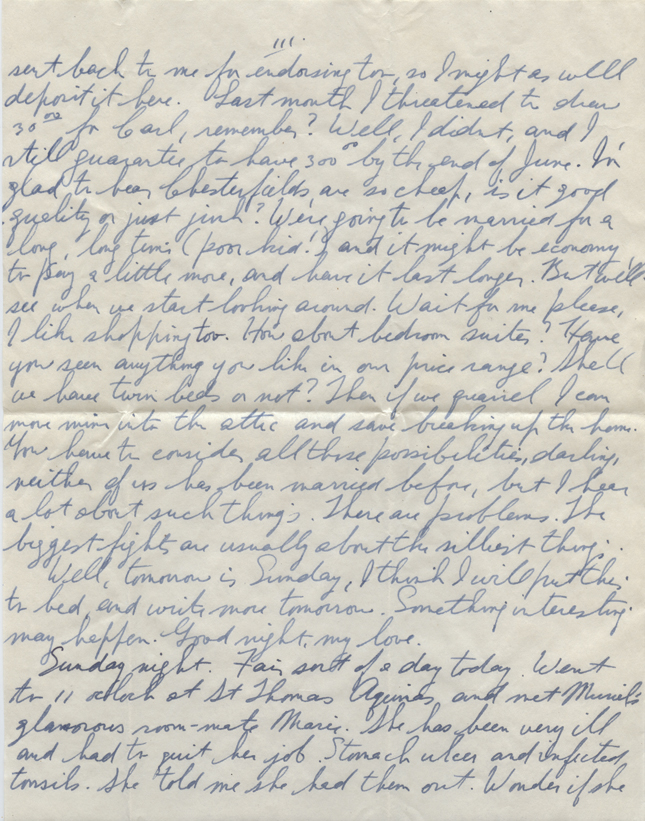 III
sent back to me for endorsing too, so I might as well
deposit it here. Last month I threatened to draw
30.00 for Carl, remember? Well, I didn't, and I
still guarantee to have 300° by the end of June. I'm
glad to hear Chesterfields are so cheap, is it good
quality or just junk? We're going to be married for a
long, long time (poor kid!) and it might be economy
to pay a little more, and have it last longer. But we'll
see when we start looking around. Wait for me please,
I like shopping too. How about bedroom suites? Have
you seen anything you like in our price range? Shall
we have twin beds or not? Then if we quarrel I can
move mine into the attic and save breaking up the home.
You have to consider all those possibilities, darling,
neither of us has been married before, but I hear
a lot about such things. There are problems. The
biggest fights are usually about the silliest things.
Well, tomorrow is Sunday, I think I will put this
to bed, and write more tomorrow. Something interesting
may happen. Good night, my love.
Sunday night. Fair sort of a day today. Went
to 11 oclock at St Thomas Aquinas and met Muriel's
glamorous room-mate Marie. She has been very ill
and had to quit her job. Stomach ulcer and infected
tonsils. She told me she had them out. Wonder if she